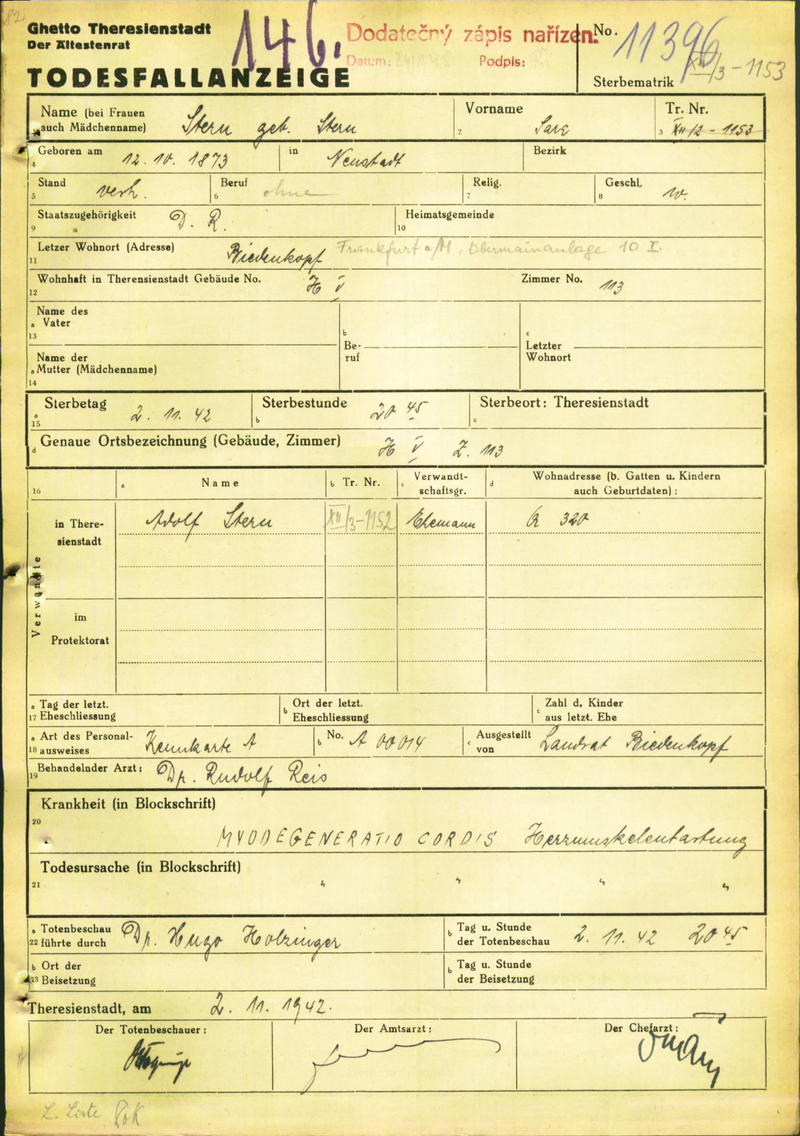 Ghetto Theresienstadt
Der Ältestenrat
TODESFALLANZEIGE
146.
Dodatečný zápis nařízen.
Datum: Podpis:
No. 11396
Sterbematrik XII/3-1153
Name (bei Frauen auch Mädchenname) Stern geb. Stern
Vorname 2 Sara
Tr. Nr. 3 XII/2-1153
Geboren am 4 12. 10. 1873 in Neustadt Bezirk
Stand 5 verh. Beruf 6 ohne Relig. 7 Geschl. 8 w.
Staatszugehörigkeit 9 D. R. Heimatsgemeinde 10
Letzer Wohnort (Adresse) 11 Biedenkopf Frankfurt a/M. Obermainanlage 10 I.
Wohnhaft in Therensienstadt Gebäude No. 12 H V Zimmer No. 113
Name des a Vater 13
b Be-ruf
c Letzter Wohnort
Name der a Mutter (Mädchenname) 14
Sterbetag a 15 2. 11. 42 Sterbestunde b 20 45 Sterbeort: Theresienstadt c
d Genaue Ortsbezeichnung (Gebäude, Zimmer) H V Z. 113
16 a Name b Tr. Nr. c Verwandt-schaftsgr. d Wohnadresse (b. Gatten u. Kindern auch Geburtdaten):
Verwandte
in There-sienstadt Adolf Stern XII/3-1152 Ehemann Q 320
im Protektorat
a Tag der letzt. 17 Eheschliessung b Ort der letzt. Eheschliessung c Zahl d. Kinder aus letzt. Ehe
a Art des Personal-18 ausweises Kennkarte A b No. A 00014 c Ausgestellt von Landrat Biedenkopf
Behandelnder Arzt: 19 Dr. Rudolf Reis
Krankheit (in Blockschrift)
20 MYODEGENERATIO CORDIS Herzmuskelentartung
Todesursache (in Blockschrift)
21 " " " "
a Totenbeschau 22 führte durch Dr. Hugo Holzinger b Tag u. Stunde der Totenbeschau 2. 11. 42 20 45
b Ort der 23 Beisetzung b Tag u. Stunde der Beisetzung
Theresienstadt, am 2. 11. 1942.
Der Totenbeschauer: Der Amtsarzt: Der Chefarzt:
L. Liste